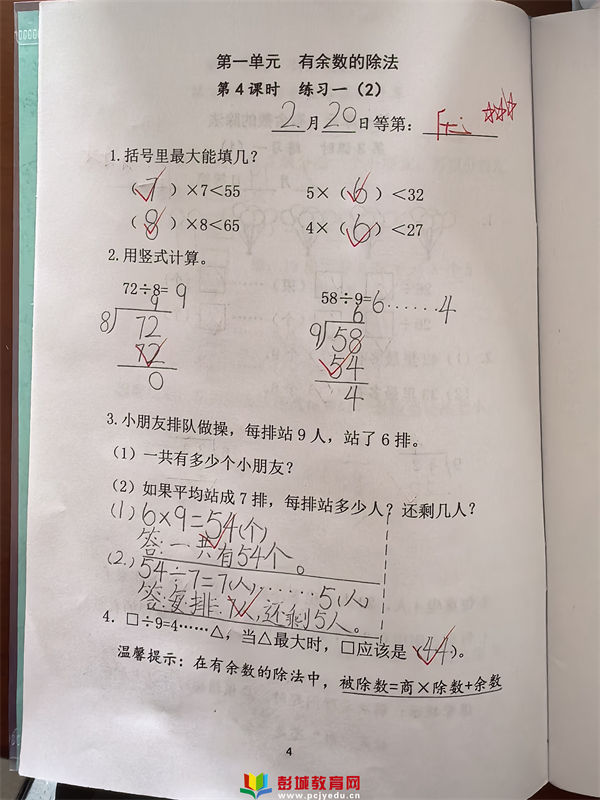 第一单元 有余数的除法
第4课时 练习一（2）
2月20日等第：
1.括号里最大能填几？
（7）×7＜55 5×（6）＜32
（8）×8＜65 4×（6）＜27
2.用竖式计算。
72÷8=9 58÷9=6······4
9 6
8 72 9 58
72 54
0 4
3.小朋友排队做操，每排站9人，站了6排。
（1）一共有多少个小朋友？
（2）如果平均站成7排，每排站多少人？还剩几人？
(1) 6×9=54(个)
答:一共有54个。
(2.) 54÷7=7(人)······5(人)
答:每排7人,还剩5人。
4.□÷9=4······△，当△最大时，□应该是（44）。
温馨提示：在有余数的除法中，被除数=商×除数+余数
4
彭城教育网
www.pcjyedu.cn